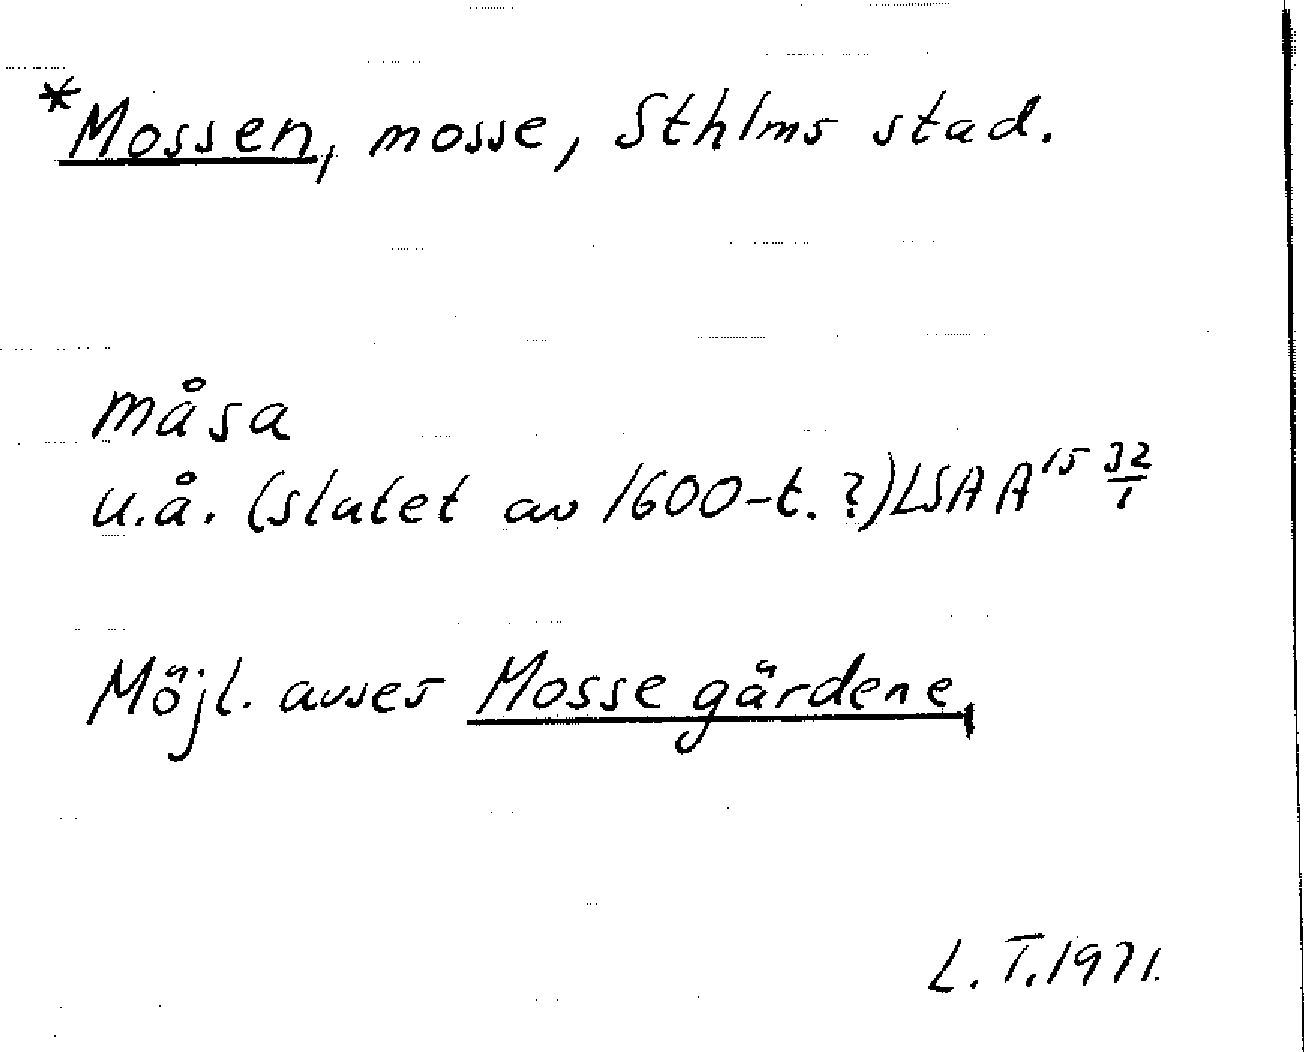 *Mossen, mosse, Sthlms stad.
måsa
u.å. (slutet av 1600-t.?) LSA A¹⁵ 32/1
Möjl. avses Mosse gärdene,
L. T. 1971.